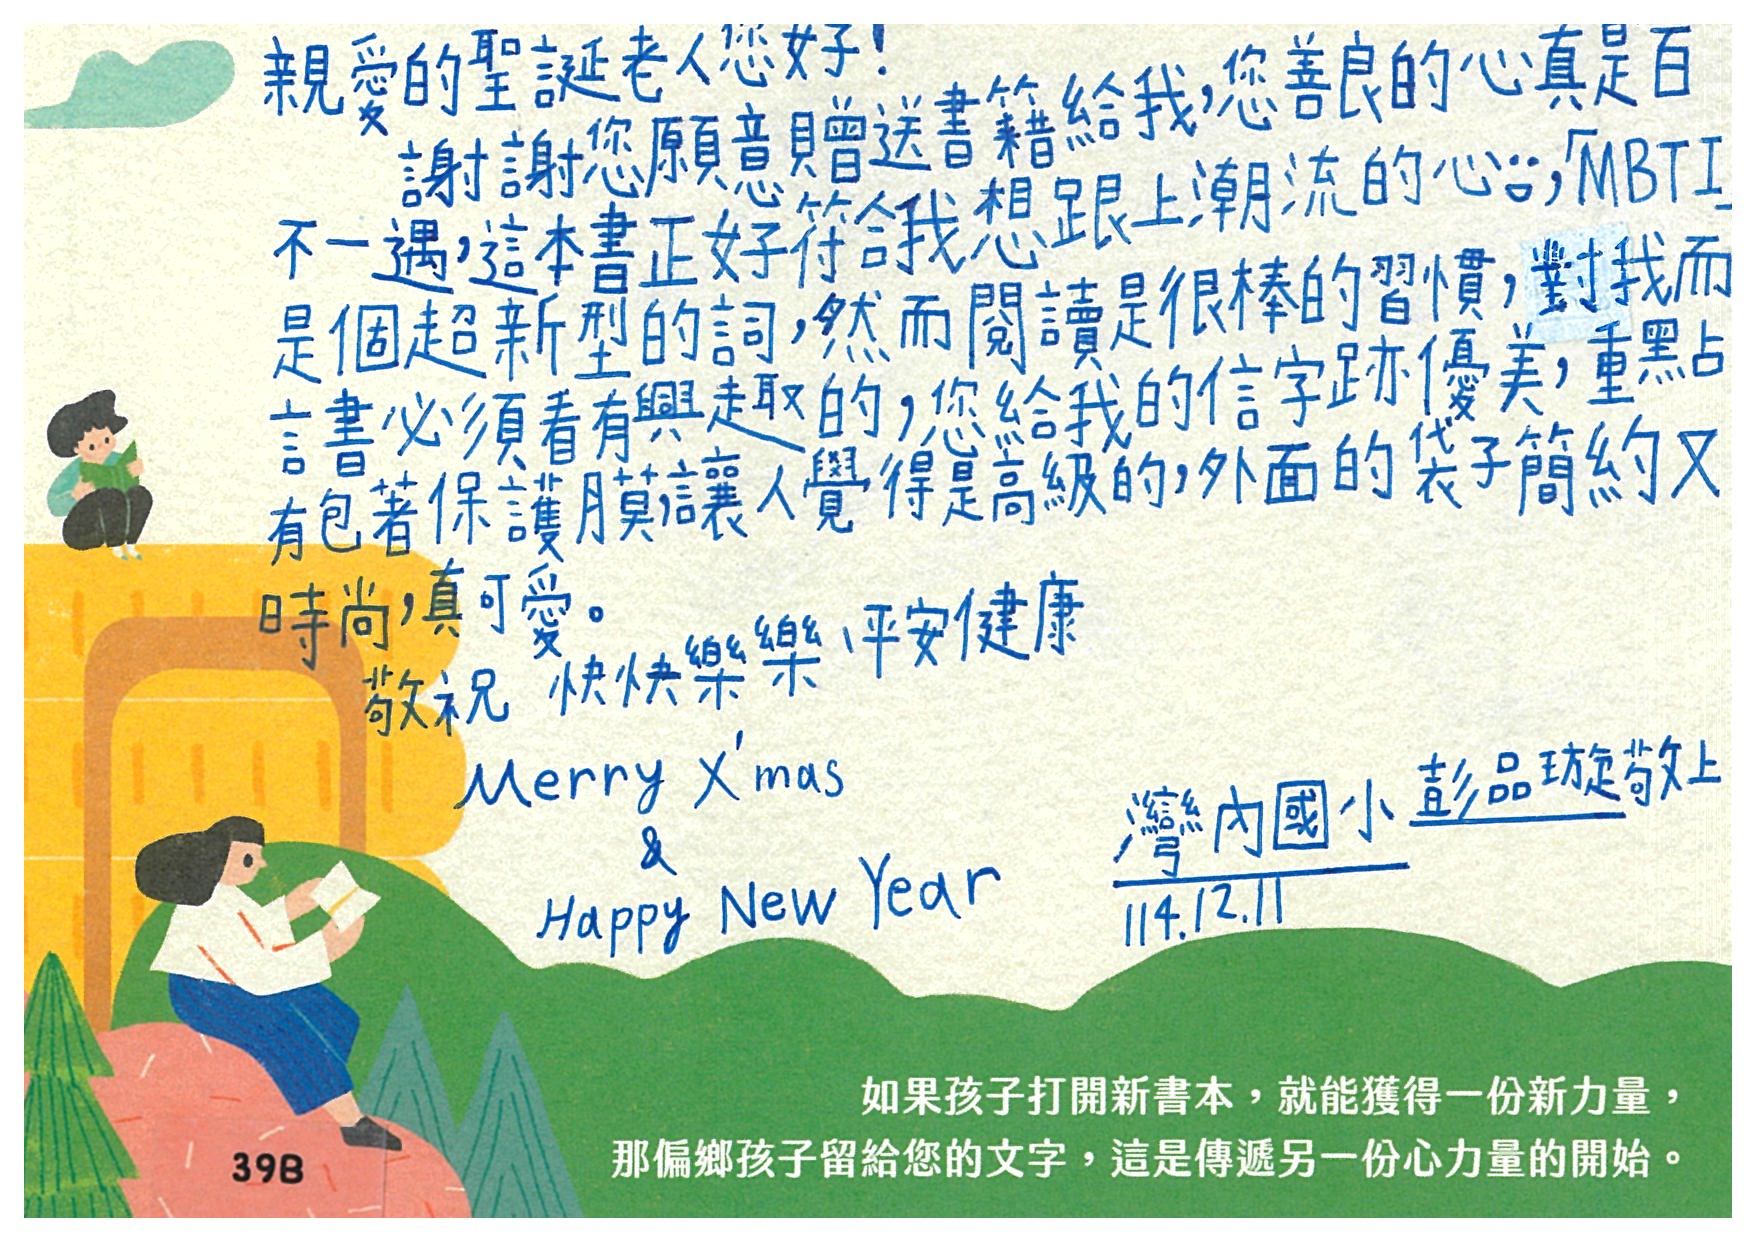 親愛的聖誕老人您好!
謝謝您願意贈送書籍給我,您善良的心真是百
不一遇,這本書正好符合我想跟上潮流的心,「MBTI」
是個超新型的詞,然而閱讀是很棒的習慣,對我而
言書必須看有興趣的,您給我的信字跡優美,重點
有包著保護膜,讓人覺得是高級的,外面的袋子簡約又
時尚,真可愛。
敬祝 快快樂樂、平安健康
Merry X'mas
&
Happy New Year
灣內國小 彭品璇敬上
114.12.11
如果孩子打開新書本,就能獲得一份新力量,
那偏鄉孩子留給您的文字,這是傳遞另一份心力量的開始。
39B